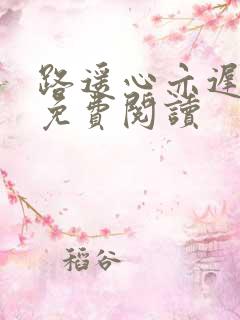 路遥心亦遲
免費閱讀
稻谷